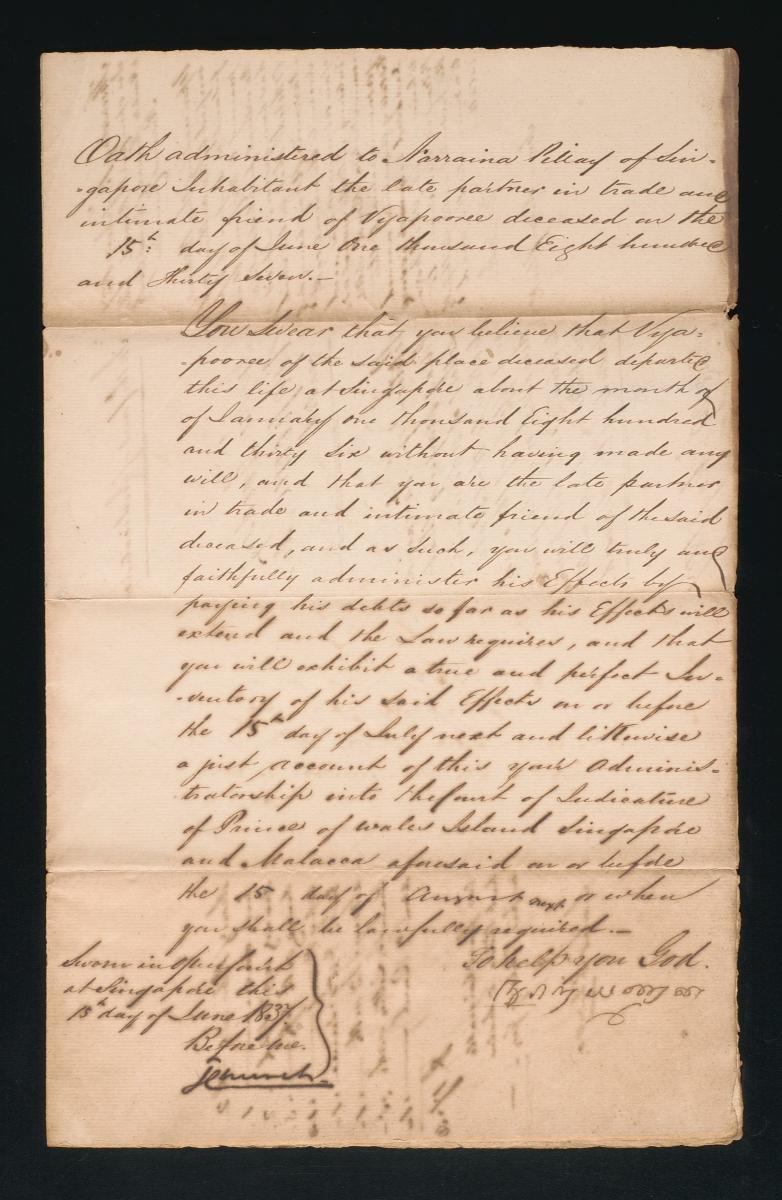 Oath administered to Narraina Pillay of Sin-
-gapore Inhabitant the late partner in trade and
intimate friend of Vyapooree deceased on the
15th day of June One thousand Eight hundred
and Thirty Seven.-
You Swear that you believe that Vya-
-pooree of the said place deceased departed
this life at Singapore about the month of
of January one thousand Eight hundred
and thirty Six without having made any
will, and that you are the late partner
in trade and intimate friend of the said
deceased, and as such, you will truly and
faithfully administer his Effects by
paying his debts so far as his Effects will
extend and the Law requires, and that
you will exhibit a true and perfect In-
-ventory of his said Effects on or before
the 15th day of July next and likewise
a just account of this your Adminis-
-tratorship into the Court of Judicature
of Prince of Wales Island Singapore
and Malacca aforesaid on or before
the 15 day of August next or when
you shall be lawfully required.-
So help you God.
Sworn in open Court
at Singapore this
15th day of June 1837
Before me.